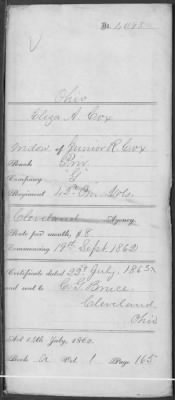 Ohio
Eliza A. Cox
Widow of Junior R. Cox
Rank Pvt.
Company G
Regiment 42d Ohio Vols.
Cleveland Agency
Rate per month, $8
Commencing 19th Sept 1862
Certificate dated 23d July, 1863
and sent to C. G. Bruce
Cleveland
Ohio
Act 14th July, 1862.
Book A Vol. 1 Page 165